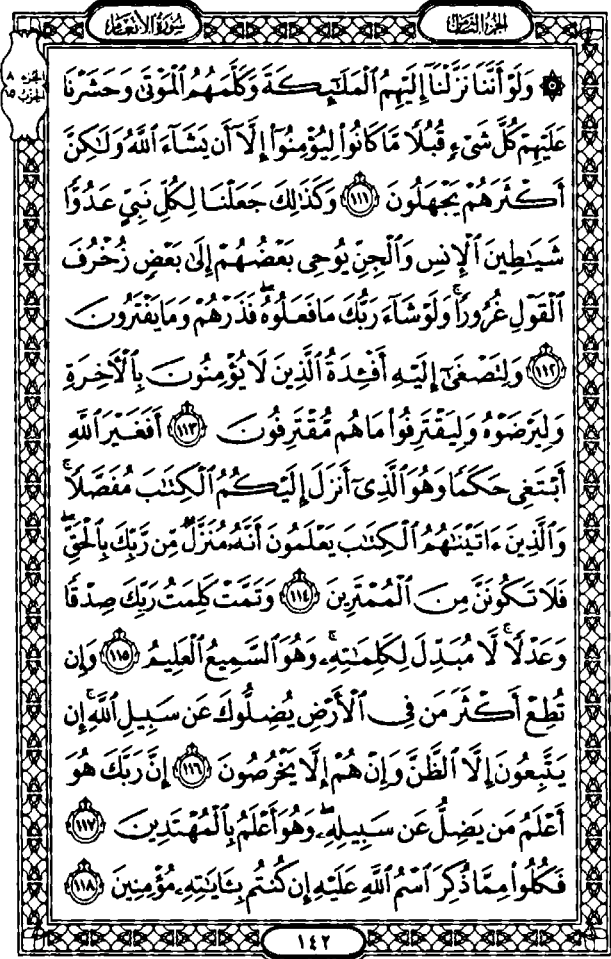 سُورَةُ الأَنْعَامِ
الجُزْءُ الثَّامِنُ
الجزء ٨
الحزب ١٥
۞ وَلَوْ أَنَّنَا نَزَّلْنَآ إِلَيْهِمُ ٱلْمَلَٰٓئِكَةَ وَكَلَّمَهُمُ ٱلْمَوْتَىٰ وَحَشَرْنَا
عَلَيْهِمْ كُلَّ شَىْءٍ قُبُلًا مَّا كَانُوا۟ لِيُؤْمِنُوٓا۟ إِلَّآ أَن يَشَآءَ ٱللَّهُ وَلَٰكِنَّ
أَكْثَرَهُمْ يَجْهَلُونَ ﴿١١١﴾ وَكَذَٰلِكَ جَعَلْنَا لِكُلِّ نَبِىٍّ عَدُوًّا
شَيَٰطِينَ ٱلْإِنسِ وَٱلْجِنِّ يُوحِى بَعْضُهُمْ إِلَىٰ بَعْضٍ زُخْرُفَ
ٱلْقَوْلِ غُرُورًا ۚ وَلَوْ شَآءَ رَبُّكَ مَا فَعَلُوهُ ۖ فَذَرْهُمْ وَمَا يَفْتَرُونَ
﴿١١٢﴾ وَلِتَصْغَىٰٓ إِلَيْهِ أَفْـِٔدَةُ ٱلَّذِينَ لَا يُؤْمِنُونَ بِٱلْـَٔاخِرَةِ
وَلِيَرْضَوْهُ وَلِيَقْتَرِفُوا۟ مَا هُم مُّقْتَرِفُونَ ﴿١١٣﴾ أَفَغَيْرَ ٱللَّهِ
أَبْتَغِى حَكَمًا وَهُوَ ٱلَّذِىٓ أَنزَلَ إِلَيْكُمُ ٱلْكِتَٰبَ مُفَصَّلًا ۚ
وَٱلَّذِينَ ءَاتَيْنَٰهُمُ ٱلْكِتَٰبَ يَعْلَمُونَ أَنَّهُۥ مُنَزَّلٌ مِّن رَّبِّكَ بِٱلْحَقِّ ۖ
فَلَا تَكُونَنَّ مِنَ ٱلْمُمْتَرِينَ ﴿١١٤﴾ وَتَمَّتْ كَلِمَتُ رَبِّكَ صِدْقًا
وَعَدْلًا ۚ لَّا مُبَدِّلَ لِكَلِمَٰتِهِۦ ۚ وَهُوَ ٱلسَّمِيعُ ٱلْعَلِيمُ ﴿١١٥﴾ وَإِن
تُطِعْ أَكْثَرَ مَن فِى ٱلْأَرْضِ يُضِلُّوكَ عَن سَبِيلِ ٱللَّهِ ۚ إِن
يَتَّبِعُونَ إِلَّا ٱلظَّنَّ وَإِنْ هُمْ إِلَّا يَخْرُصُونَ ﴿١١٦﴾ إِنَّ رَبَّكَ هُوَ
أَعْلَمُ مَن يَضِلُّ عَن سَبِيلِهِۦ ۖ وَهُوَ أَعْلَمُ بِٱلْمُهْتَدِينَ ﴿١١٧﴾
فَكُلُوا۟ مِمَّا ذُكِرَ ٱسْمُ ٱللَّهِ عَلَيْهِ إِن كُنتُم بِـَٔايَٰتِهِۦ مُؤْمِنِينَ ﴿١١٨﴾
١٤٢